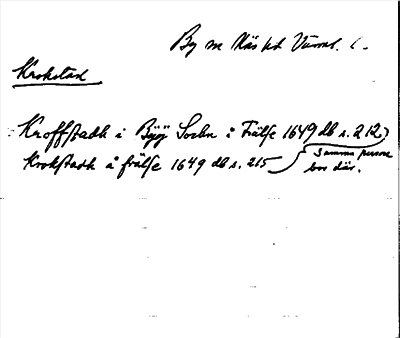 By m Näs hd Värml. l.
Krokstad
Kroffstadh i Byy Sochn i Frälse 1649 db s. 212
Krokstadh å frälse 1649 db s. 215
Samma person
bor där.